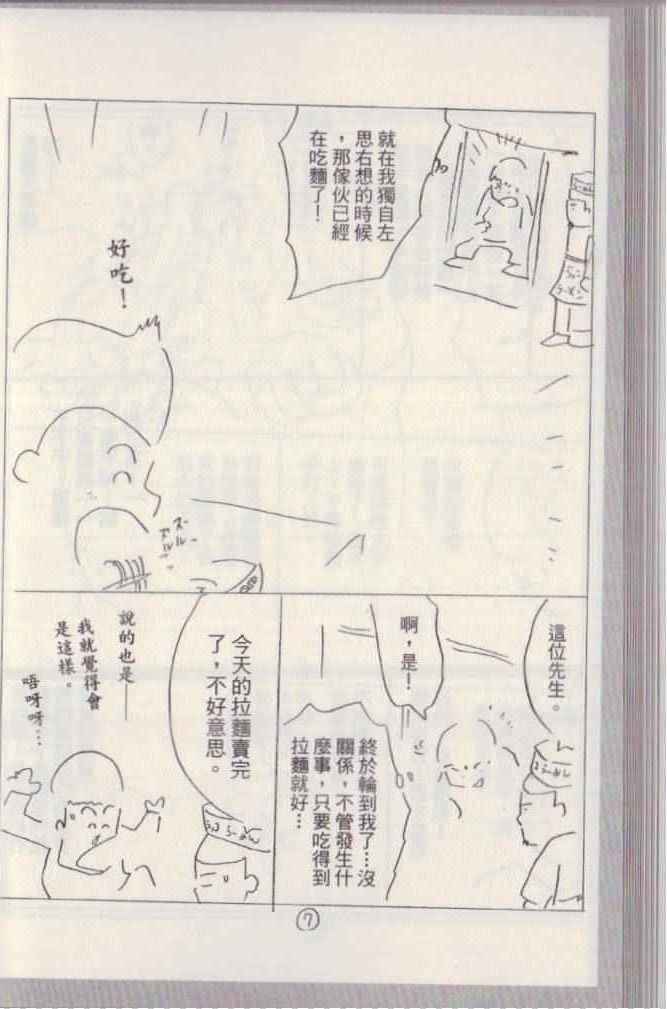 就在我獨自左
思右想的時候
，那傢伙已經
在吃麵了！
らーめん
好吃！
ズー
ズルルー
這位先生。
啊，是！
らーめん
終於輪到我了…沒
關係，不管發生什
麼事，只要吃得到
拉麵就好…
今天的拉麵賣完
了，不好意思。
らーめん
說的也是——
我就覺得會
是這樣。
唔呀呀…
7